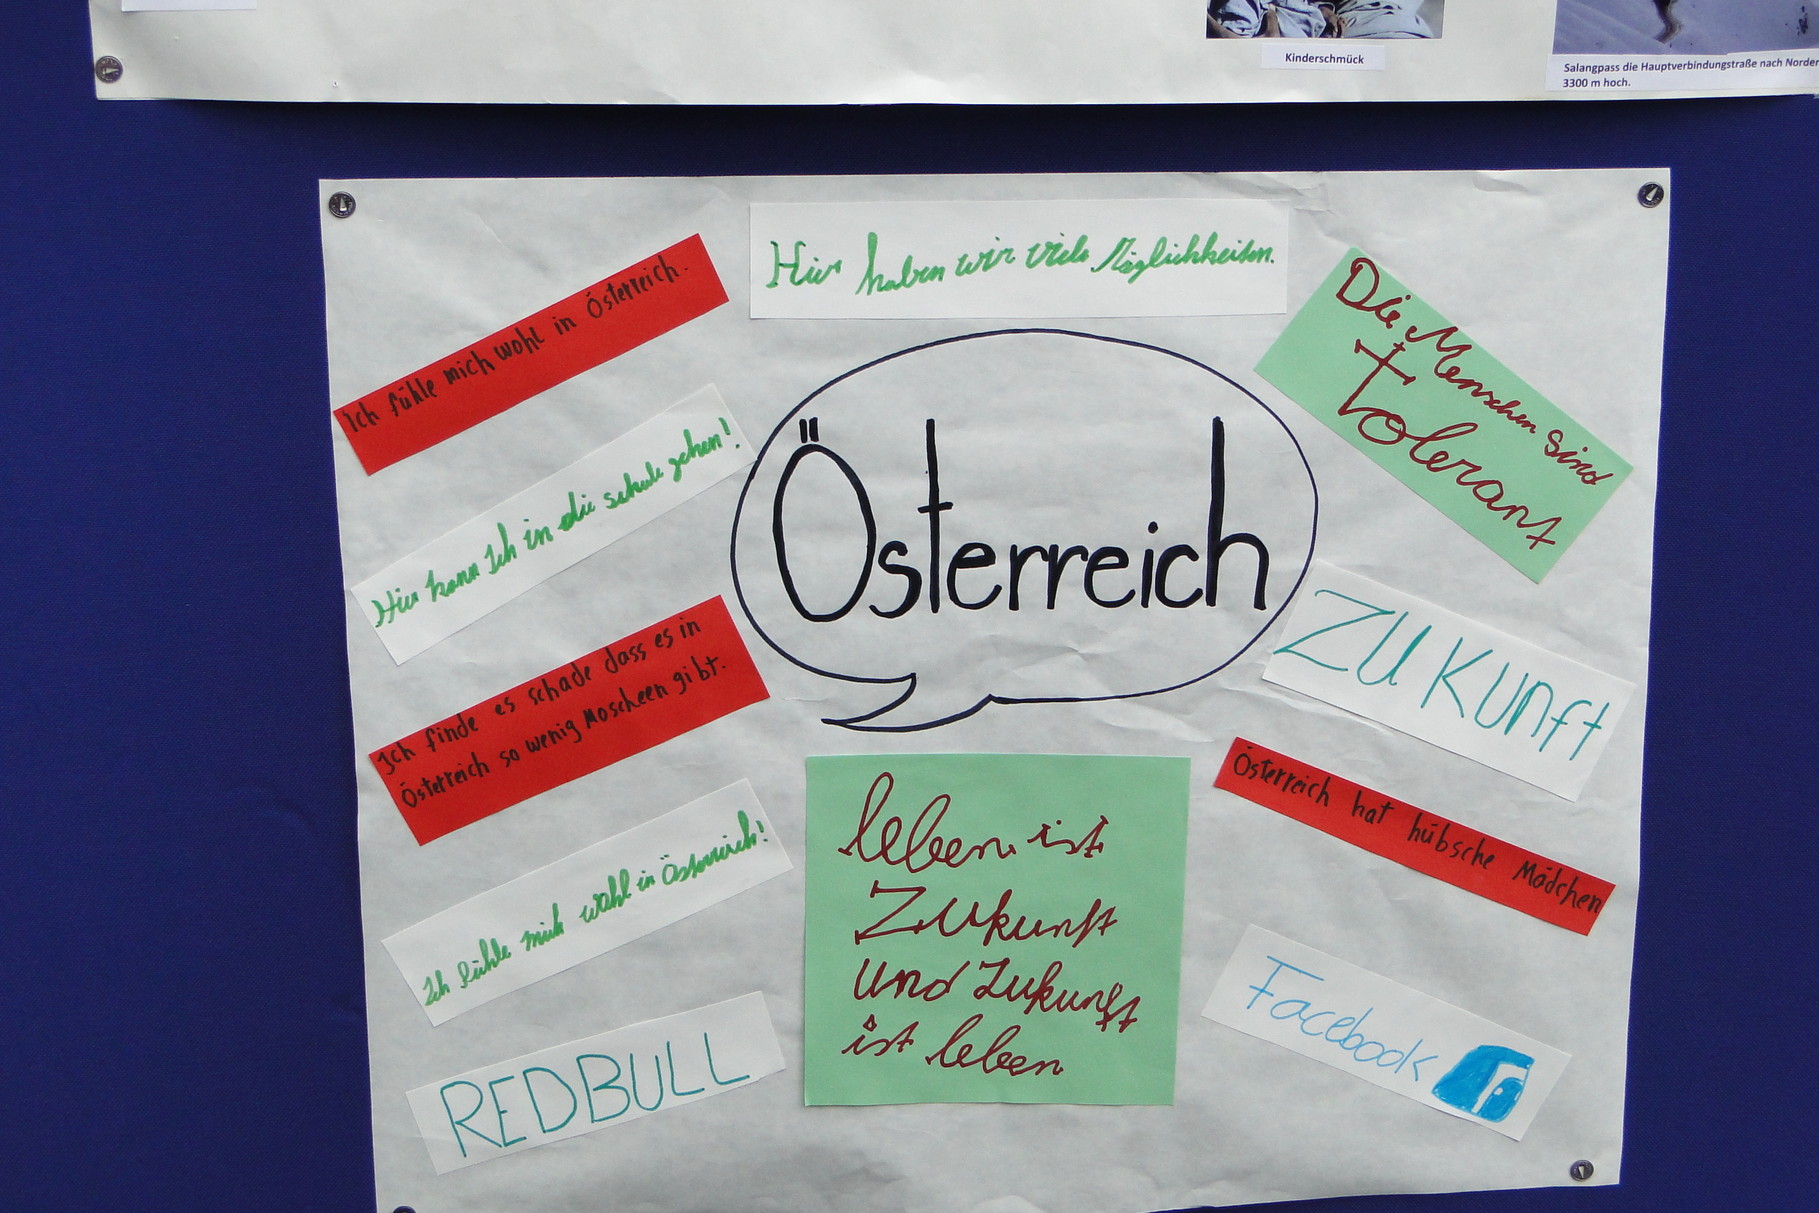 Kinderschmück
Salangpass die Hauptverbindungstraße nach Norden
3300 m hoch.
Hier haben wir viele Möglichkeiten.
Ich fühle mich wohl in Österreich.
Hier kann Ich in die schule gehen!
Ich finde es schade dass es in
Österreich so wenig Moscheen gibt.
Ich fühle mich wohl in Österreich!
REDBULL
Österreich
leben ist
Zukunft
und Zukunft
ist leben
Die Menschen sind
tolerant
ZUKUnft
Österreich hat hübsche Mädchen
Facebook f